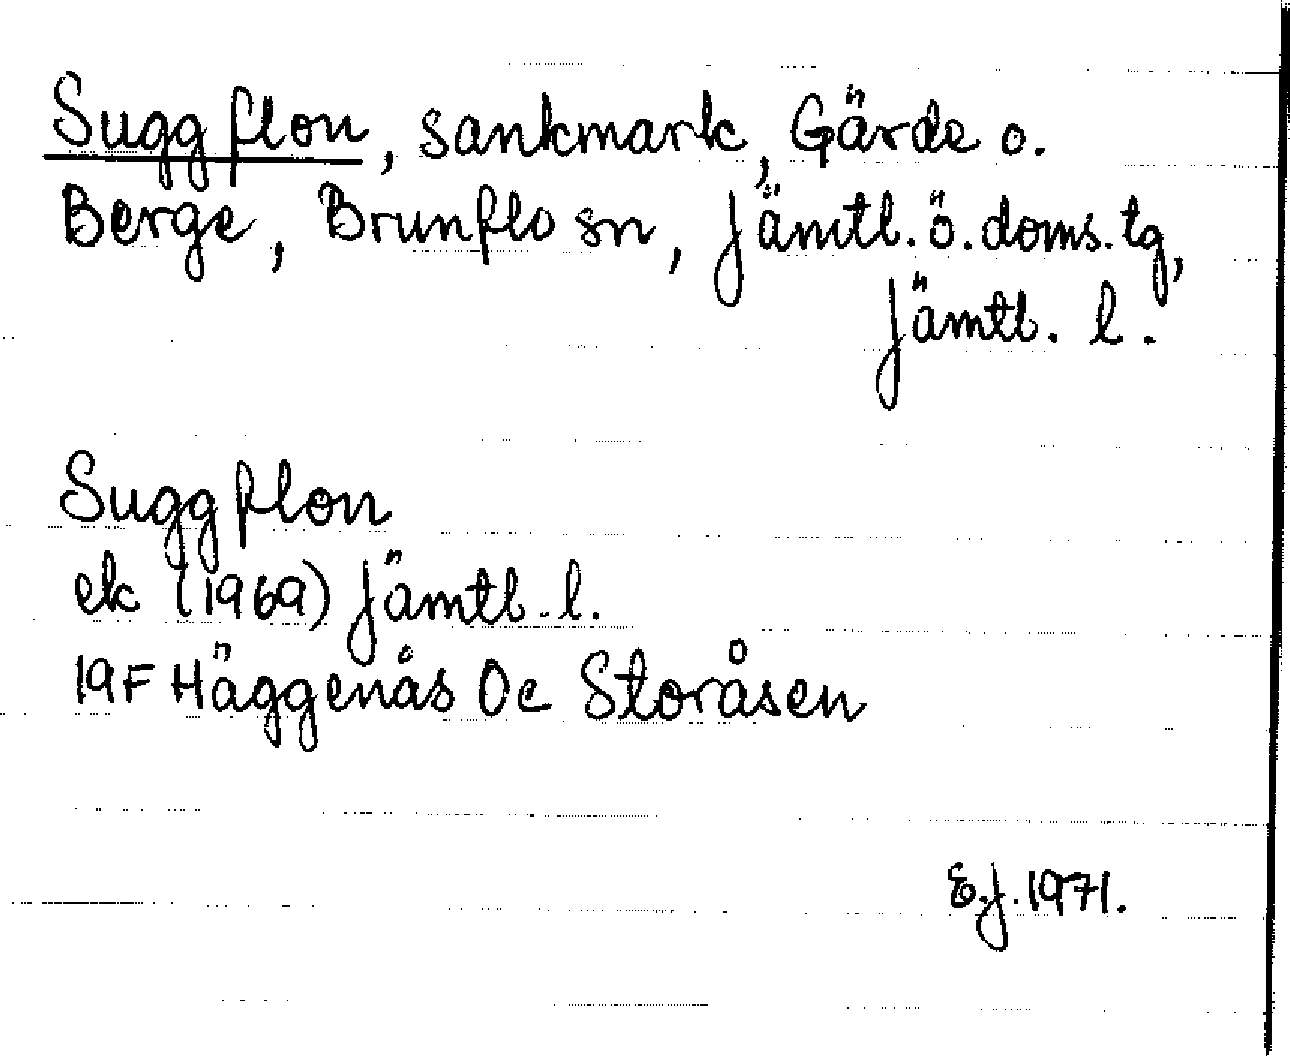 Suggflon, sankmark, Gärde o.
Berge, Brunflo sn, Jämtl. ö. doms. tg,
Jämtl. l.
Suggflon
ek (1969) Jämtl. l.
19F Häggenås 0c Storåsen
E.J. 1971.